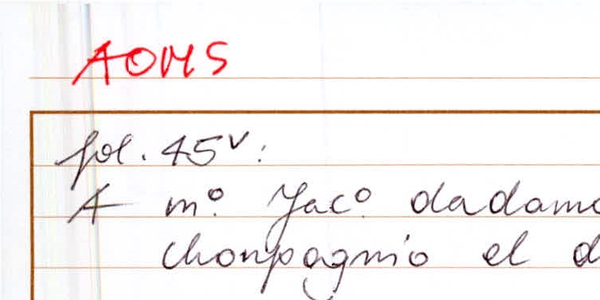 AOMS
fol. 45v:
A mº Jacº dadamo
chonpagnio el d